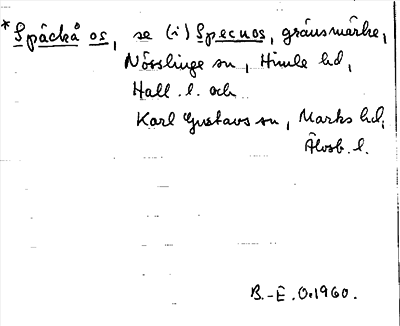 *Späckå os, se (i) Specuos, gränsmärke,
Nösslinge sn, Himle hd,
Hall. l. och
Karl Gustavs sn, Marks hd,
Älvsb. l.
B.-E. O. 1960.